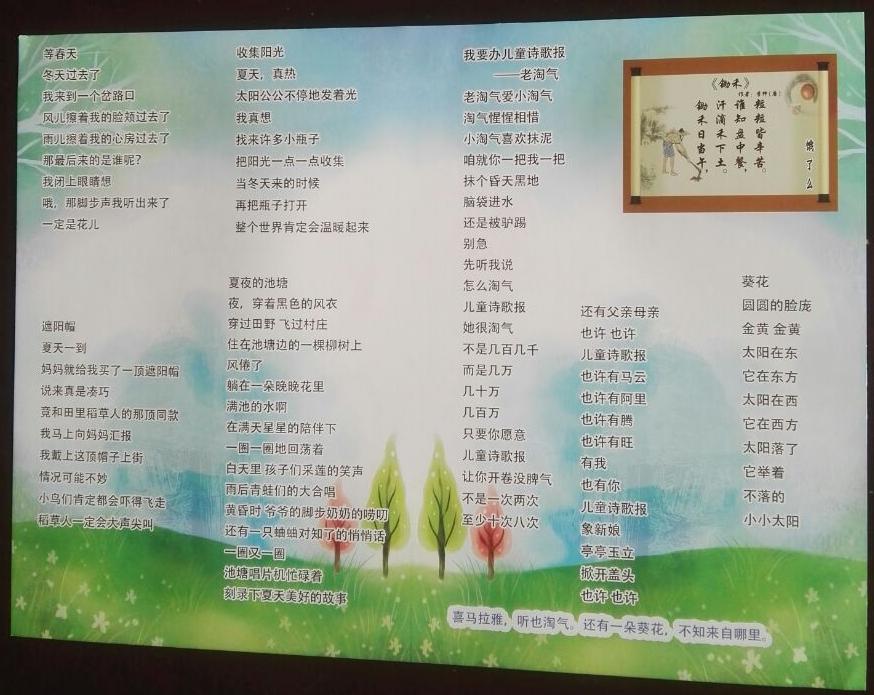 等春天
冬天过去了
我来到一个岔路口
风儿擦着我的脸颊过去了
雨儿擦着我的心房过去了
那最后来的是谁呢?
我闭上眼睛想
哦,那脚步声我听出来了
一定是花儿
遮阳帽
夏天一到
妈妈就给我买了一顶遮阳帽
说来真是凑巧
竟和田里稻草人的那顶同款
我马上向妈妈汇报
我戴上这顶帽子上街
情况可能不妙
小鸟们肯定都会吓得飞走
稻草人一定会大声尖叫
收集阳光
夏天,真热
太阳公公不停地发着光
我真想
找来许多小瓶子
把阳光一点一点收集
当冬天来的时候
再把瓶子打开
整个世界肯定会温暖起来
夏夜的池塘
夜,穿着黑色的风衣
穿过田野 飞过村庄
住在池塘边的一棵柳树上
风倦了
躺在一朵晚晚花里
满池的水啊
在满天星星的陪伴下
一圈一圈地回荡着
白天里 孩子们采莲的笑声
雨后青蛙们的大合唱
黄昏时 爷爷的脚步奶奶的唠叨
还有一只蛐蛐对知了的悄悄话
一圈又一圈
池塘唱片机忙碌着
刻录下夏天美好的故事
我要办儿童诗歌报
——老淘气
老淘气爱小淘气
淘气惺惺相惜
小淘气喜欢抹泥
咱就你一把我一把
抹个昏天黑地
脑袋进水
还是被驴踢
别急
先听我说
怎么淘气
儿童诗歌报
她很淘气
不是几百几千
而是几万
几十万
几百万
只要你愿意
儿童诗歌报
让你开卷没脾气
不是一次两次
至少十次八次
还有父亲母亲
也许 也许
儿童诗歌报
也许有马云
也许有阿里
也许有腾
也许有旺
有我
也有你
儿童诗歌报
象新娘
亭亭玉立
掀开盖头
也许 也许
《锄禾》
作者:李绅(唐)
锄禾日当午,
汗滴禾下土。
谁知盘中餐,
短短皆辛苦。
饿了么
葵花
圆圆的脸庞
金黄 金黄
太阳在东
它在东方
太阳在西
它在西方
太阳落了
它举着
不落的
小小太阳
喜马拉雅,听也淘气。还有一朵葵花,不知来自哪里。